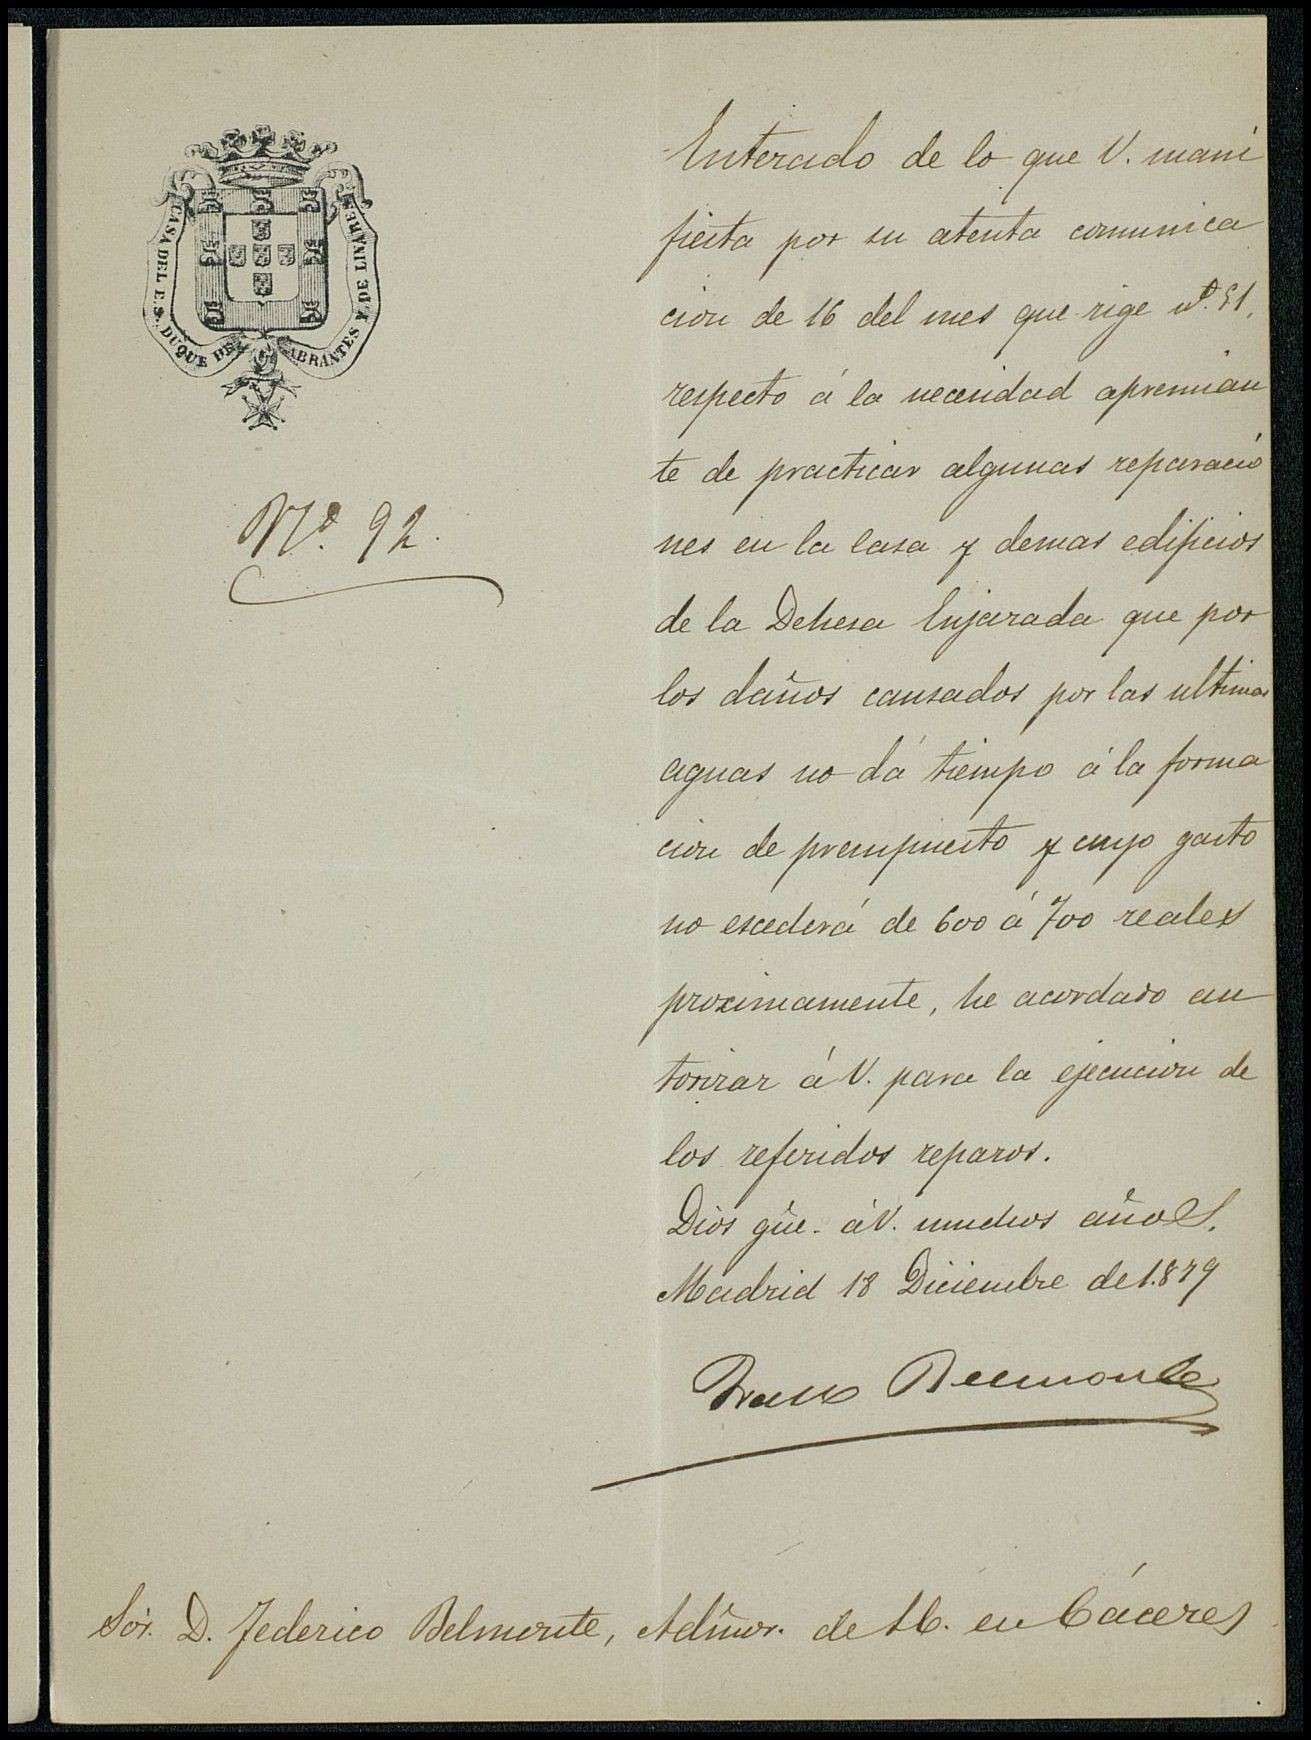 CASA DEL E.S. DUQUE DE ABRANTES Y DE LINARES
Nº. 92.
Enterado de lo que V. mani
fiesta por su atenta comunica
cion de 16 del mes que rige nº. 51,
respecto á la necesidad apremian
te de practicar algunas reparacio
nes en la casa y demas edificios
de la Dehesa Enjarada que por
los daños causados por las ultimas
aguas no dá tiempo á la forma
cion de presupuesto y cuyo gasto
no escederá de 600 á 700 reales
proximamente, he acordado au
torizar á V. para la ejecucion de
los referidos reparos.
Dios gûe. á V. muchos años.
Madrid 18 Diciembre de 1.879
Belmonte
Sór. D. Federico Belmonte, Admor. de en Cáceres